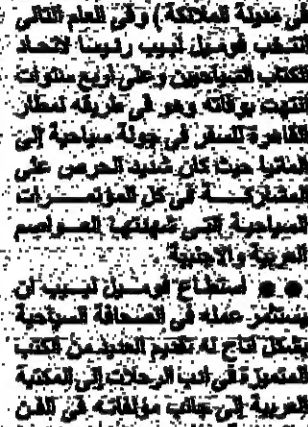 فى مدونة الملائكة) وفى العام التالى
انتخب فوميل لبيب رئيسا لاتحاد
الكتاب السياحيين وعلى اربع سنوات
انتهت بوفاته وهو فى طريقه لمطار
القاهرة للسفر فى جولة سياحية إلى
المانيا حيث كان شديد الحرص على
المشاركة فى كل المؤتمرات
السياحية التى شهدتها العواصم
العربية والاجنبية
●● استطاع فوميل لبيب ان
يستثمر عمله فى الصحافة السياحية
بشكل اتاح له تقديم العديد من الكتب
المتميزة فى ادب الرحلات إلى المكتبة
العربية إلى جانب مؤلفاته فى الفن